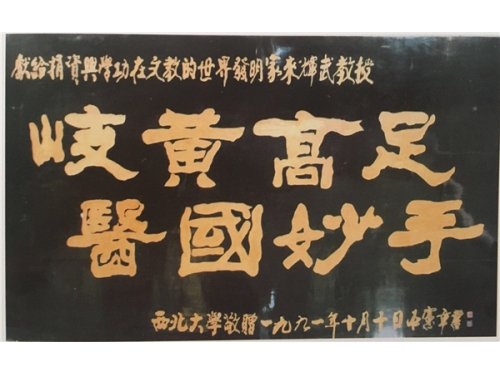 獻給捐資興學功在文教的世界發明家來輝武教授
岐黄高足
醫國妙手
西北大學敬贈一九九一年十月十日吴憲章書